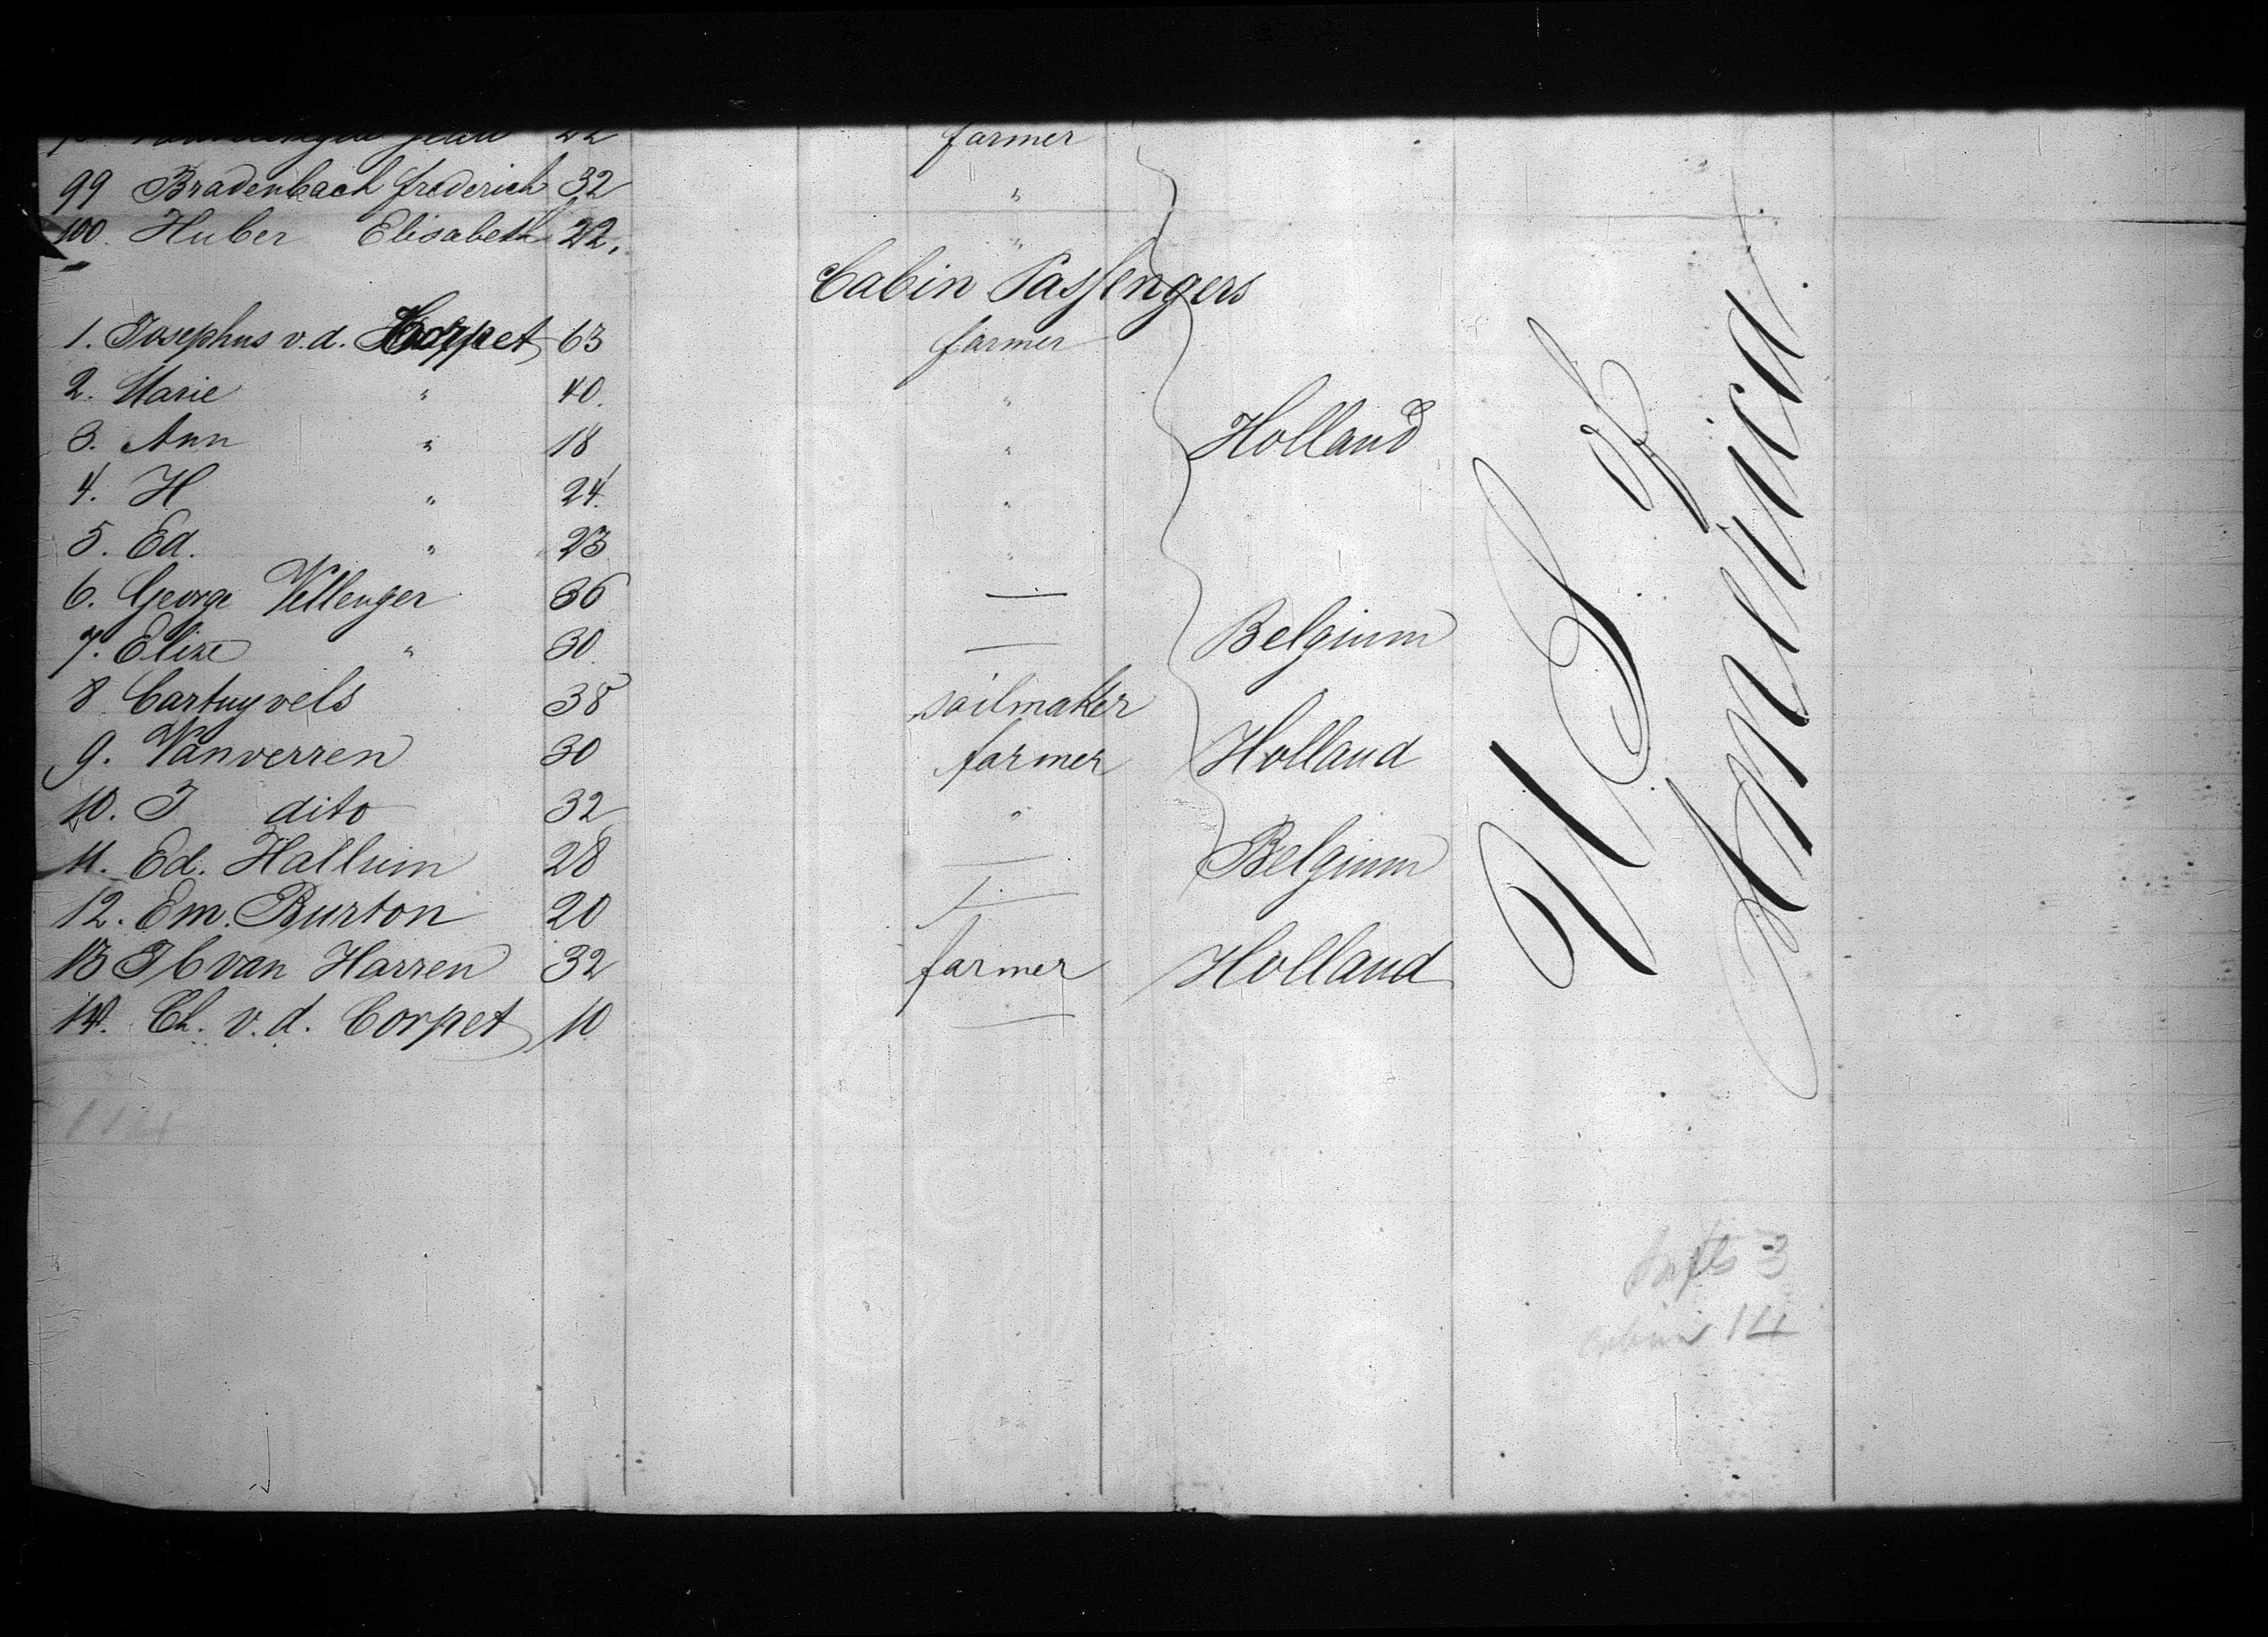 Jean 22 farmer
99 Bradenbach frederich 32 "
100. Huber Elisabeth 22. "
Cabin Passengers
1. Josephus v. d. Corpet 63 farmer
2. Marie " 40. "
3. Ann " 18 " Holland
4. H " 24. "
5. Ed. " 23 "
6. George Vellenger 36 —
7. Elize " 30. — Belgium
8 Cartuyvels 38 sailmaker
9. Vanverren 30 farmer Holland
10. J dito 32 "
11. Ed. Hallum 28 — Belgium
12. Em. Burton 20 —
13 J C van Harren 32 farmer Holland
14. Ch. v. d. Corpet 10 —
U S of
America.
3
14